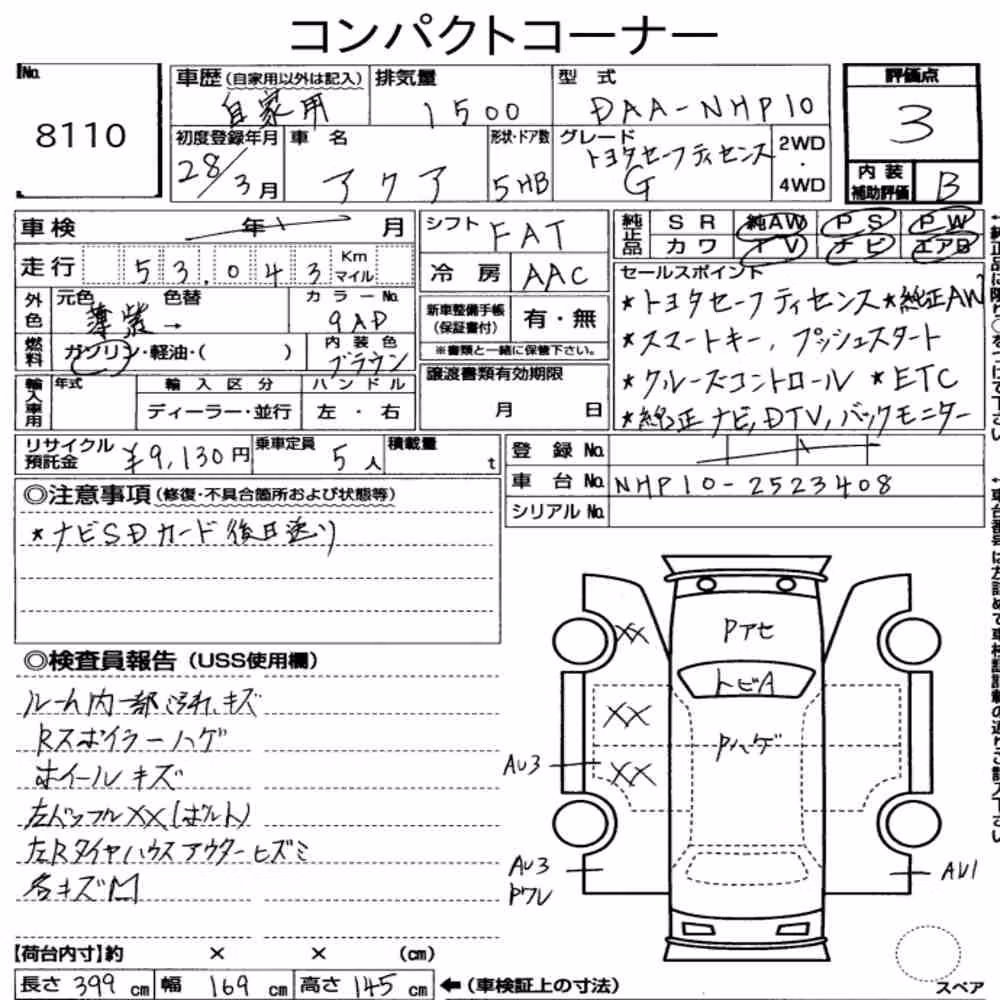 コンパクトコーナー
No.
8110
車歴 (自家用以外は記入)
自家用
排気量
1500
型 式
DAA-NHP10
評価点
3
内装補助評価 B
初度登録年月
28/3月
車 名
アクア
形状・ドア数
5HB
グレード
トヨタセーフティセンス
G
2WD
・
4WD
車検 年 月
走行 53.043 Km マイル
シフト FAT
冷房 AAC
純正品 SR 純AW PS PW
カワ TV ナビ エアB
セールスポイント
★トヨタセーフティセンス★純正AW
★スマートキー,プッシュスタート
★クルーズコントロール ★ETC
★純正ナビ,DTV,バックモニター
外色 元色 色替 カラーNo.
薄紫→ 9AP
燃料 ガソリン・軽油・( )
内装色
ブラウン
新車整備手帳
(保証書付) 有・無
※書類と一緒に保管下さい。
輸入車用 年式 輸入区分 ハンドル
ディーラー・並行 左・右
譲渡書類有効期限
月 日
リサイクル預託金 ¥9,130円
乗車定員 5人
積載量 t
登録No.
車台No. NHP10-2523408
シリアルNo.
◎注意事項 (修復・不具合箇所および状態等)
★ナビSDカード後日送り
◎検査員報告 (USS使用欄)
ルーム内一部汚れ、キズ
Rスポイラーハゲ
ホイールキズ
左ドンフルXX(ボルト)
左Rタイヤハウスアウターヒズミ
各キズ凹
XX
Pアセ
トビA
XX
Pハゲ
AU3
XX
AU3
Pワレ
AU1
【荷台内寸】約 × × (cm)
長さ 399 cm 幅 169 cm 高さ 145 cm ←(車検証上の寸法)
スペア